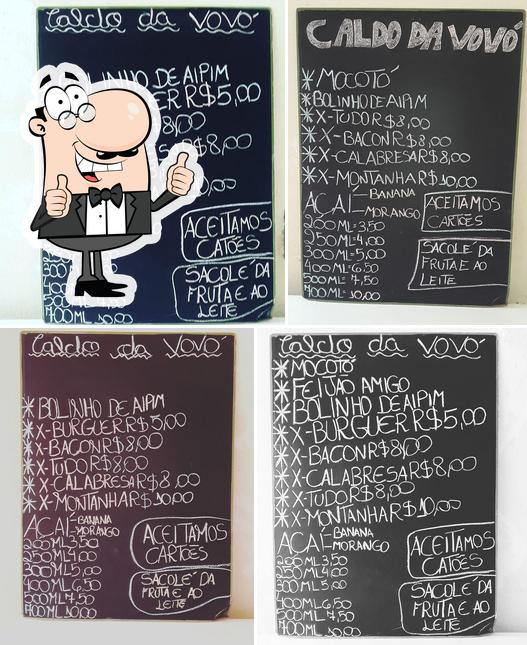 Caldo da Vovó
BOLINHO DE AIPIM
R$5,00
8,00
R$8,00
,00
ACEITAMOS
CATÕES
SACOLÉ DA
FRUTA E AO
LEITE
700ML 10,00
CALDO DA VOVÓ
* MOCOTÓ
* BOLINHO DE AIPIM
* X-TUDO R$8,00
* X-BACON R$8,00
* X-CALABRESA R$8,00
* X-MONTANHA R$10,00
AÇAÍ-BANANA
MORANGO
200ML=3,50
250ML=4,00
300ML=5,00
400ML=6,50
500ML=7,50
700ML=10,00
ACEITAMOS
CARTÕES
SACOLÉ DA
FRUTA E AO
LEITE
Caldo da Vovó
* BOLINHO DE AIPIM
* X-BURGUER R$5,00
* X-BACON R$8,00
* X-TUDO R$8,00
* X-CALABRESA R$8,00
* X-MONTANHA R$10,00
AÇAÍ-BANANA
MORANGO
200ML 3,50
250ML 4,00
300ML 5,00
400ML 6,50
500ML 7,50
700ML 10,00
ACEITAMOS
CARTÕES
SACOLÉ DA
FRUTA E AO
LEITE
Caldo da Vovó
* MOCOTÓ
* FEIJÃO AMIGO
* BOLINHO DE AIPIM
* X-BURGUER R$5,00
* X-BACON R$8,00
* X-CALABRESA R$8,00
* X-TUDO R$8,00
* X-MONTANHA R$10,00
AÇAÍ-BANANA
MORANGO
200ML 3,50
250ML 4,00
300ML 5,00
400ML 6,50
500ML 7,50
700ML 10,00
ACEITAMOS
CARTÕES
SACOLÉ DA
FRUTA E AO
LEITE